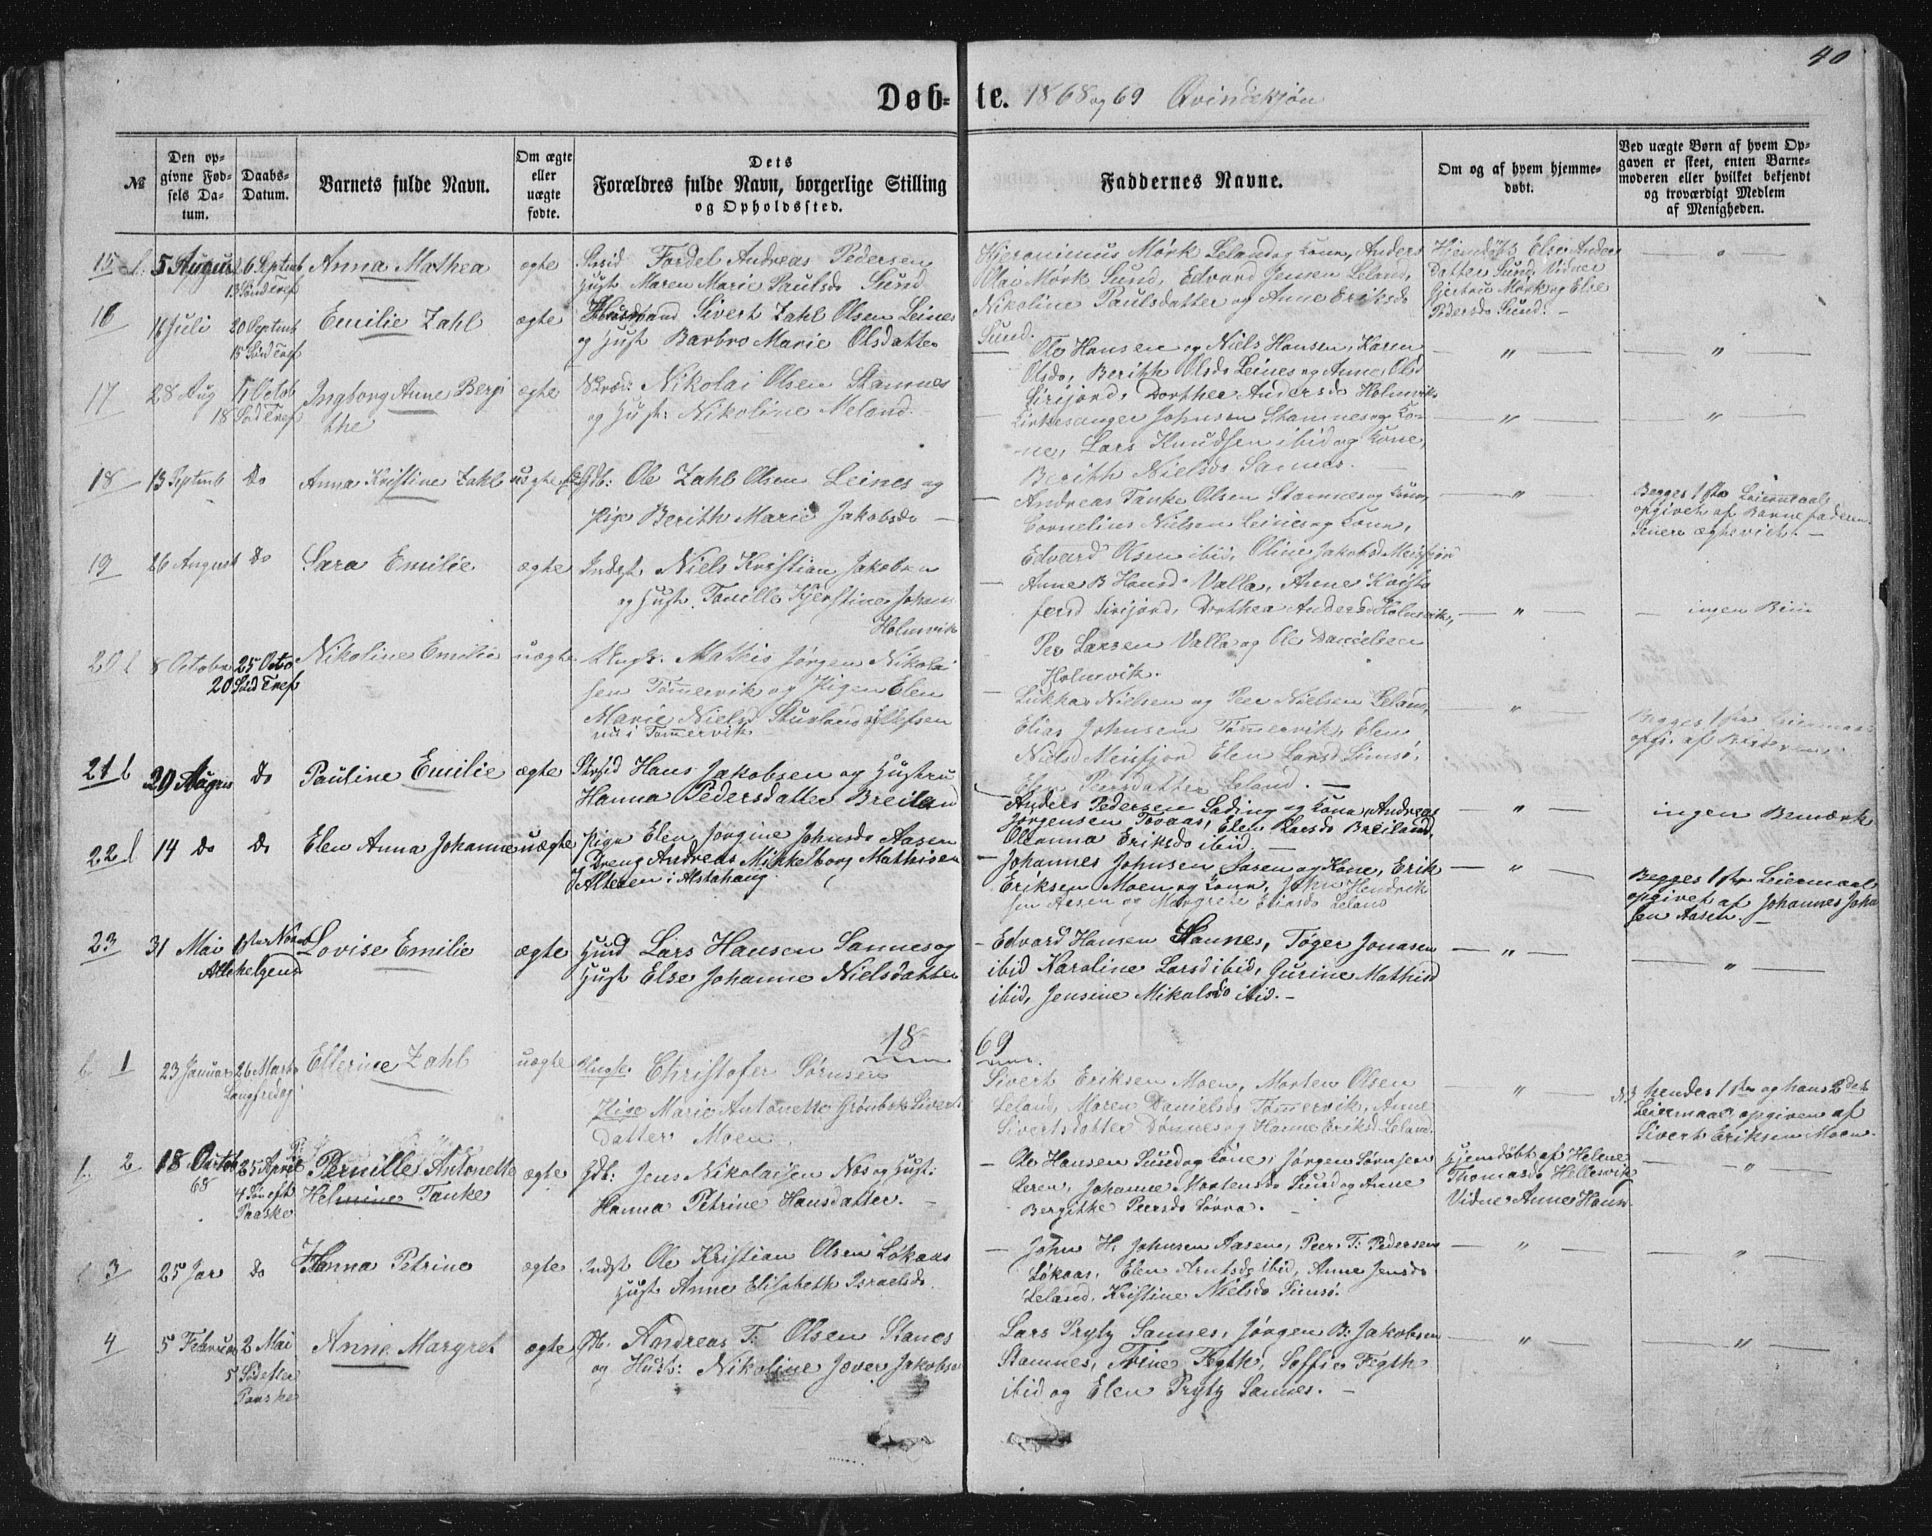 40
Døb- te. 1868 og 69 Qvindekjøn
№
Den opgivne Fødsels Datum.
Daabs-Datum.
Barnets fulde Navn.
Om ægte eller uægte fødte.
Dets Forældres fulde Navn, borgerlige Stilling og Opholdssted.
Faddernes Navne.
Om og af hvem hjemmedøbt.
Ved uægte Børn af hvem Opgaven er skeet, enten Barnemoderen eller hvilket bekjendt og troværdigt Medlem af Menigheden.
15 5 August 6 Septemb Anna Mathea ægte Fordel Andreas Pedersen
13 Sønd Tref Hust Maren Marie Paulsd Sund
Hieronimus Mørk Leland og Kone, Anders
Olai Mørk Sund, Edvard Jensen Leland,
Nikoline Paulsdatter og Anne Eriksd
Sund.
Hjemdøbt Else Anders
Datter Sund. Vidner
Gjertru Mørk og Else
Pedersd Sund.
16 16 Juli 20 Septemb Emilie Zahl ægte Husmand Sivert Zahl Olsen Leines
15 Sød Tref og Hust Barbro Marie Olsdatter
Ole Hansen og Niels Hansen, Karen
Olsd, Berith Olsd Leines og Anne Olsd
Sirijord, Dorthea Andersd Holmvik
17 28 Aug 11 Octob Ingborg Anne Bergi ægte Nikolai Olsen Stamnes
18 Sød Tref the og Hust: Nikoline Meland.
Kirkesanger Johnsen Stamnes og Ko-
ne, Lars Knudsen ibid og Kone,
Berith Nielsd Sannes.
18 13 Septemb Do Anna Kristine Zahl uægte Ole Zahl Olsen Leines og
Pige Berith Marie Jakobsd
Andreas Tanke Olsen Stamnes og Kone
Cornelius Nielsen Leines og Kone,
Edvard Olsen ibid, Oline Jakobsd Meisfjord
Begges 1ste Leiermaal
opgivet af Barnefaderen
19 26 August Do Sara Emilie ægte Indst. Niels Kristian Jakobsen
og Hust. Tonille Kjerstine Johans
Holmvik
Anne B Hansd Valla, Anne Kristo
fersd Sirijord, Dorthea Andersd Holmvik,
Per Larsen Valla og Ole Danielsen
Holmvik.
ingen Bem
20 8 Octobr 25 Octo Nikoline Emilie uægte Ungk. Mathis Jørgen Nikolai
20 Sød Tref sen Tømmervik og Pigen Elen
Marie Nielsd Sturland
i Tømmervik
Lukkas Nilsen og Peer Nielsen Leland,
Elias Johnsen Tømmervik, Elen
Nielsd Meisfjor Elen Larsd Simsø,
Else Peersdatter Leland.
Begges 1ste Leiermaal
21 29 Augus Do Pauline Emilie ægte Hans Jakobsen og Hustru
Hanna Pedersdatter Breiland
Anders Pedersen og Kone, Andreas
Jørgensen Tovaas, Elen Breiland,
Oleanna Eriksd ibid.
ingen Bemærk
22 14 do Do Elen Anna Johanne uægte Pige Elen Jørgine Johnsd Aasen
og Dreng Andreas Mikkelborg Mathisen
Alteren i Alstahaug.
Johannes Johnsen Aasen og Kone, Erik
Eriksen Moen og Kone, John Hendrik
sen Aasen og Margrete Eliasd Leland
Begges 1ste Leiermaal
opgivet af Johannes John
sen Aasen.
23 31 Mai 1ste Novb Lovise Emilie ægte Husd Lars Hansen Sannes og
Allehelgend Hust Else Johanne Nielsdatter
Edvard Hansen Stannes, Tøger Jonasen
ibid Karoline Larsd ibid, Gurine Mathisd
ibid, Jensine Mikalsd ibid.
18 69
1 23 Januar 26 Marts Ellerine Zahl uægte Ungk. Christofer Sørnsen
Langfredag Pige Marie Antonette Grønbek Siverts
Datter Moen.
Sivert Eriksen Moen, Morten Olsen
Leland, Maren Danielsd Tømmervik, Anne
Sivertsdatter Dønnes og Hanne Eriksd Leland.
hendes 1ste og hans 2det
Leiermaal opgiven af
Sivert Eriksen Moen.
2 18 Octob 68 25 April Pernille Antonette ægte Gdb: Jens Nikolaisen Nes og Hust:
4 Søn eft Paaske Helmine Tanke Hanna Petrine Hansdatter.
Ole Hansen Sund og Kone, Jørgen Sørnsen
Leren, Johanne Mortensd Sund og Anne
Bergitthe Peersd Sørra.
Hjemdøbt af Helene
Thomasd Hellesvik
Vidne Anne Hansd.
3 25 Jar Do Hanna Petrine ægte Indst Ole Kristian Olsen Løkaas
Hust Anne Elisabeth Israelsd.
John H. Johnsen Aasen, Peer T. Pedersen
Løkaas, Elen Arntsd ibid, Anne Jensd
Leland, Kristine Nielsd Simsø.
4 5 Februar 2 Mai Anne Margret ægte Gb. Andreas T: Olsen Stanes
5 Sød efter Paaske og Hustr: Nikoline Jæver Jakobsd
Lars Pryty Sannes, Jørgen B: Jakobsen
Stamnes, Trine Figth, Soffie Figth
ibid og Elen Pryty Sannes.